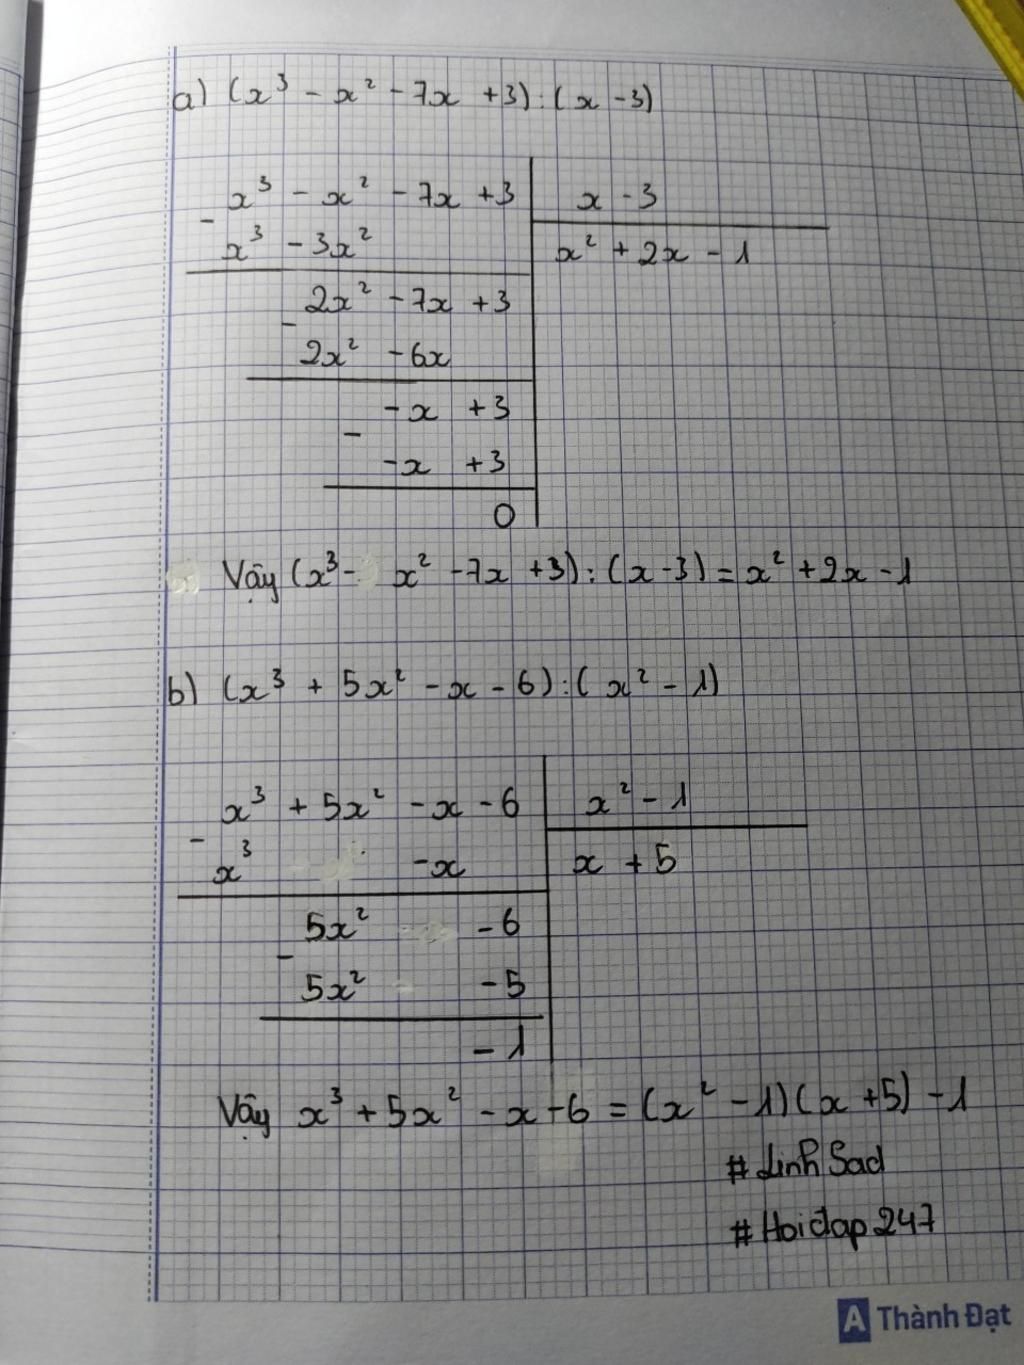 a) (x³ - x² - 7x + 3) : (x - 3)
x³ - x² - 7x + 3 x - 3
-
x³ - 3x² x² + 2x - 1
2x² - 7x + 3
-
2x² - 6x
-x + 3
-
-x + 3
0
Vậy (x³ - x² - 7x + 3) : (x - 3) = x² + 2x - 1
b) (x³ + 5x² - x - 6) : (x² - 1)
x³ + 5x² - x - 6 x² - 1
-
x³ -x x + 5
5x² - 6
-
5x² - 5
- 1
Vậy x³ + 5x² - x - 6 = (x² - 1)(x + 5) - 1
# Linh Sad
# Hoidap 247
A Thành Đạt